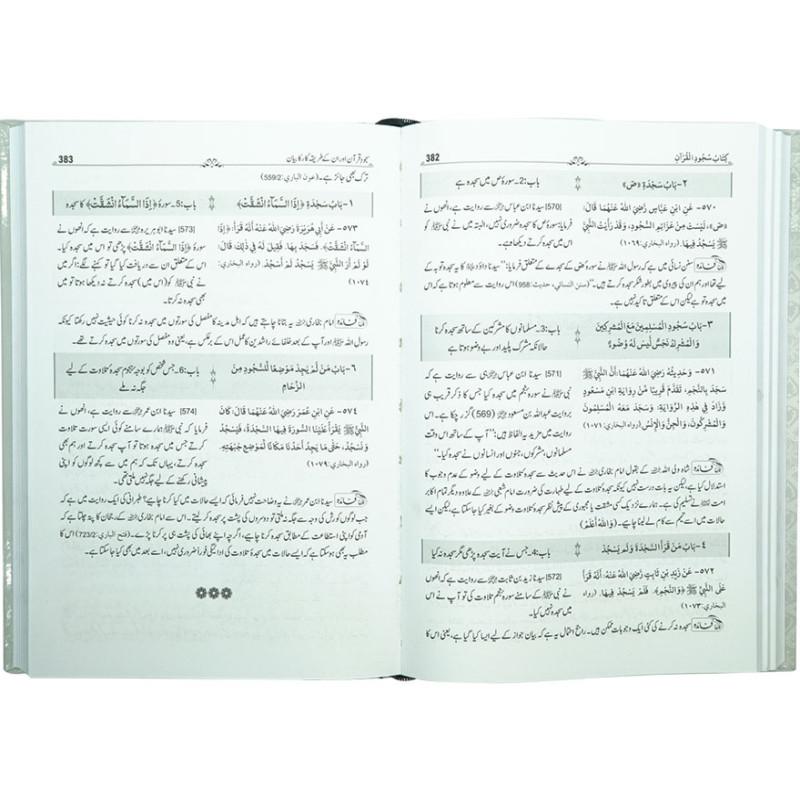 382 كِتَابُ سُجُودِ الْقُرْآنِ
٢- بَابُ سَجْدَةِ «ص»
باب:2۔ سورۂ ص میں سجدہ ہے
٥٧٠- عَنِ ابْنِ عَبَّاسٍ رَضِيَ اللهُ عَنْهُمَا قَالَ:
«ص»، لَيْسَتْ مِنْ عَزَائِمِ السُّجُودِ، وَقَدْ رَأَيْتُ النَّبِيَّ
ﷺ يَسْجُدُ فِيهَا. (رواه البخاري: ١٠٦٩)
[570] سیدنا ابن عباس سے روایت ہے، انھوں نے
فرمایا: سورۂ ص کا سجدہ ضروری نہیں، البتہ میں نے نبی ﷺ کو
اس میں سجدہ کرتے دیکھا ہے۔
فائدہ سنن نسائی میں ہے کہ رسول اللہ ﷺ نے سورۂ ص کے سجدے کے متعلق فرمایا: ”سیدنا داود کا یہ سجدہ توبہ کے
لیے تھا اور ہم ان کی پیروی میں بطور شکر سجدہ کرتے ہیں۔“ (سنن النسائي، حديث: 958) اس روایت سے معلوم ہوتا ہے کہ اس
میں سجدہ تو ہے لیکن اس کے متعلق تاکید نہیں ہے۔
٣- بَابُ سُجُودِ الْمُسْلِمِينَ مَعَ الْمُشْرِكِينَ
وَالْمُشْرِكُ نَجَسٌ لَيْسَ لَهُ وُضُوءٌ
باب:3۔ مسلمانوں کا مشرکین کے ساتھ سجدہ کرنا
حالانکہ مشرک پلید اور بے وضو ہوتا ہے
٥٧١- وَحَدِيثُهُ رَضِيَ اللهُ عَنْهُمَا أَنَّ النَّبِيَّ ﷺ
سَجَدَ بِالنَّجْمِ، تَقَدَّمَ قَرِيبًا مِنْ رِوَايَةِ ابْنِ مَسْعُودٍ
وَزَادَ فِي هٰذِهِ الرِّوَايَةِ: وَسَجَدَ مَعَهُ الْمُسْلِمُونَ
وَالْمُشْرِكُونَ، وَالْجِنُّ وَالْإِنْسُ. (رواه البخاري: ١٠٧١)
[571] سیدنا ابن عباس ہی سے روایت ہے کہ
نبی ﷺ نے سورۂ نجم میں سجدہ کیا جس کا ذکر قریب ہی
بروایت عبداللہ بن مسعود (569) گزر چکا ہے۔ اس
روایت میں مزید یہ الفاظ ہیں: ”آپ کے ساتھ اس وقت
مسلمانوں، مشرکوں، جنوں اور انسانوں نے سجدہ کیا۔“
فائدہ شاہ ولی اللہ کے بقول امام بخاری نے اس حدیث سے سجدۂ تلاوت کے لیے وضو کے عدم وجوب کا
استدلال کیا ہے لیکن یہ بات درست نہیں کیونکہ سجدۂ تلاوت کے لیے طہارت کی ضرورت امام شعبی کے علاوہ دیگر تمام اکابر
امت نے تسلیم کی ہے۔ ہمارے نزدیک کسی مشقت یا مجبوری کے پیش نظر سجدۂ تلاوت وضو کے بغیر کیا جا سکتا ہے لیکن ایسے
حالات میں اسے تیمم سے کام لینا چاہیے۔ (وَاللهُ أَعْلَمُ)
٤- بَابُ مَنْ قَرَأَ السَّجْدَةَ وَلَمْ يَسْجُدْ
باب:4۔ جس نے آیت سجدہ پڑھی مگر سجدہ نہ کیا
٥٧٢- عَنْ زَيْدِ بْنِ ثَابِتٍ رَضِيَ اللهُ عَنْهُ: أَنَّهُ قَرَأَ
عَلَى النَّبِيِّ ﷺ: ﴿وَالنَّجْمِ﴾. فَلَمْ يَسْجُدْ فِيهَا. (رواه
البخاري: ١٠٧٣)
[572] سیدنا زید بن ثابت سے روایت ہے کہ انھوں
نے نبی ﷺ کے سامنے سورۂ نجم تلاوت کی تو آپ نے
اس میں سجدہ نہیں کیا۔
فائدہ سجدہ نہ کرنے کی کئی ایک وجوہات ممکن ہیں۔ راجح احتمال یہ ہے کہ بیان جواز کے لیے ایسا کیا گیا ہے، یعنی اس کا
سجود قرآن اور ان کے طریقۂ کار کا بیان 383
ترک بھی جائز ہے۔ (عون الباري: 559/2)
١- بَابُ سَجْدَةِ ﴿إِذَا السَّمَاءُ انْشَقَّتْ﴾
باب:5۔ سورۂ ﴿إِذَا السَّمَاءُ انْشَقَّتْ﴾ کا سجدہ
٥٧٣- عَنْ أَبِي هُرَيْرَةَ رَضِيَ اللهُ عَنْهُ أَنَّهُ قَرَأَ: ﴿إِذَا
السَّمَاءُ انْشَقَّتْ﴾. فَسَجَدَ بِهَا. فَقِيلَ لَهُ فِي ذٰلِكَ، قَالَ:
لَوْ لَمْ أَرَ النَّبِيَّ ﷺ يَسْجُدُ لَمْ أَسْجُدْ. (رواه البخاري:
١٠٧٤)
[573] سیدنا ابو ہریرہ سے روایت ہے کہ انھوں نے
﴿إِذَا السَّمَاءُ انْشَقَّتْ﴾ پڑھی تو اس میں سجدہ کیا۔
اس کے متعلق ان سے دریافت کیا گیا تو کہنے لگے: اگر میں
نبی ﷺ کو (اس میں) سجدہ کرتے نہ دیکھا ہوتا تو میں
بھی سجدہ نہ کرتا۔
فائدہ امام بخاری یہ بتانا چاہتے ہیں کہ اہل مدینہ کا مفصل کی سورتوں میں سجدہ نہ کرنا کوئی حیثیت نہیں رکھتا کیونکہ
رسول اللہ ﷺ اور آپ کے بعد خلفائے راشدین کا عمل اس کے برعکس ہے، یعنی وہ مفصل کی سورتوں میں سجدہ کرتے تھے۔
٦- بَابُ مَنْ لَمْ يَجِدْ مَوْضِعًا لِلسُّجُودِ مِنَ
الزِّحَامِ
باب:6۔ جس شخص کو بوجہ ہجوم سجدۂ تلاوت کے لیے
جگہ نہ ملے
٥٧٤- عَنِ ابْنِ عُمَرَ رَضِيَ اللهُ عَنْهُمَا قَالَ: كَانَ
النَّبِيُّ ﷺ يَقْرَأُ عَلَيْنَا السُّورَةَ فِيهَا السَّجْدَةُ، فَيَسْجُدُ
وَنَسْجُدُ، حَتَّى مَا يَجِدُ أَحَدُنَا مَكَانًا لِمَوْضِعِ جَبْهَتِهِ.
(رواه البخاري: ١٠٧٩)
[574] سیدنا ابن عمر سے روایت ہے، انھوں نے
فرمایا کہ نبی ﷺ ہمارے سامنے کوئی ایسی سورت تلاوت
کرتے جس میں سجدہ ہوتا تو آپ سجدہ کرتے اور ہم بھی
سجدہ کرتے، یہاں تک کہ ہم میں سے کچھ لوگوں کو اپنی
پیشانی رکھنے کے لیے جگہ نہیں ملتی تھی۔
فائدہ سیدنا ابن عمر نے یہ وضاحت نہیں فرمائی کہ ایسے حالات میں کیا کرنا چاہیے؟ طبرانی کی ایک روایت میں ہے
جب لوگوں کو رش کی وجہ سے جگہ نہ ملتی تو دوسروں کی پشت پر سجدہ کرتے۔ اس سے امام بخاری کے رجحان کا پتہ چلتا ہے کہ
آدمی کو اپنی استطاعت کے مطابق سجدہ کرنا چاہیے، اگرچہ اپنے بھائی کی پشتی پر کرنا پڑے۔ (فتح الباري: 723/2) اس کا
مطلب یہ بھی ہو سکتا ہے کہ ایسے حالات میں سجدۂ تلاوت کی ادائیگی فوراً ضروری نہیں، اسے بعد میں بھی کیا جا سکتا ہے۔